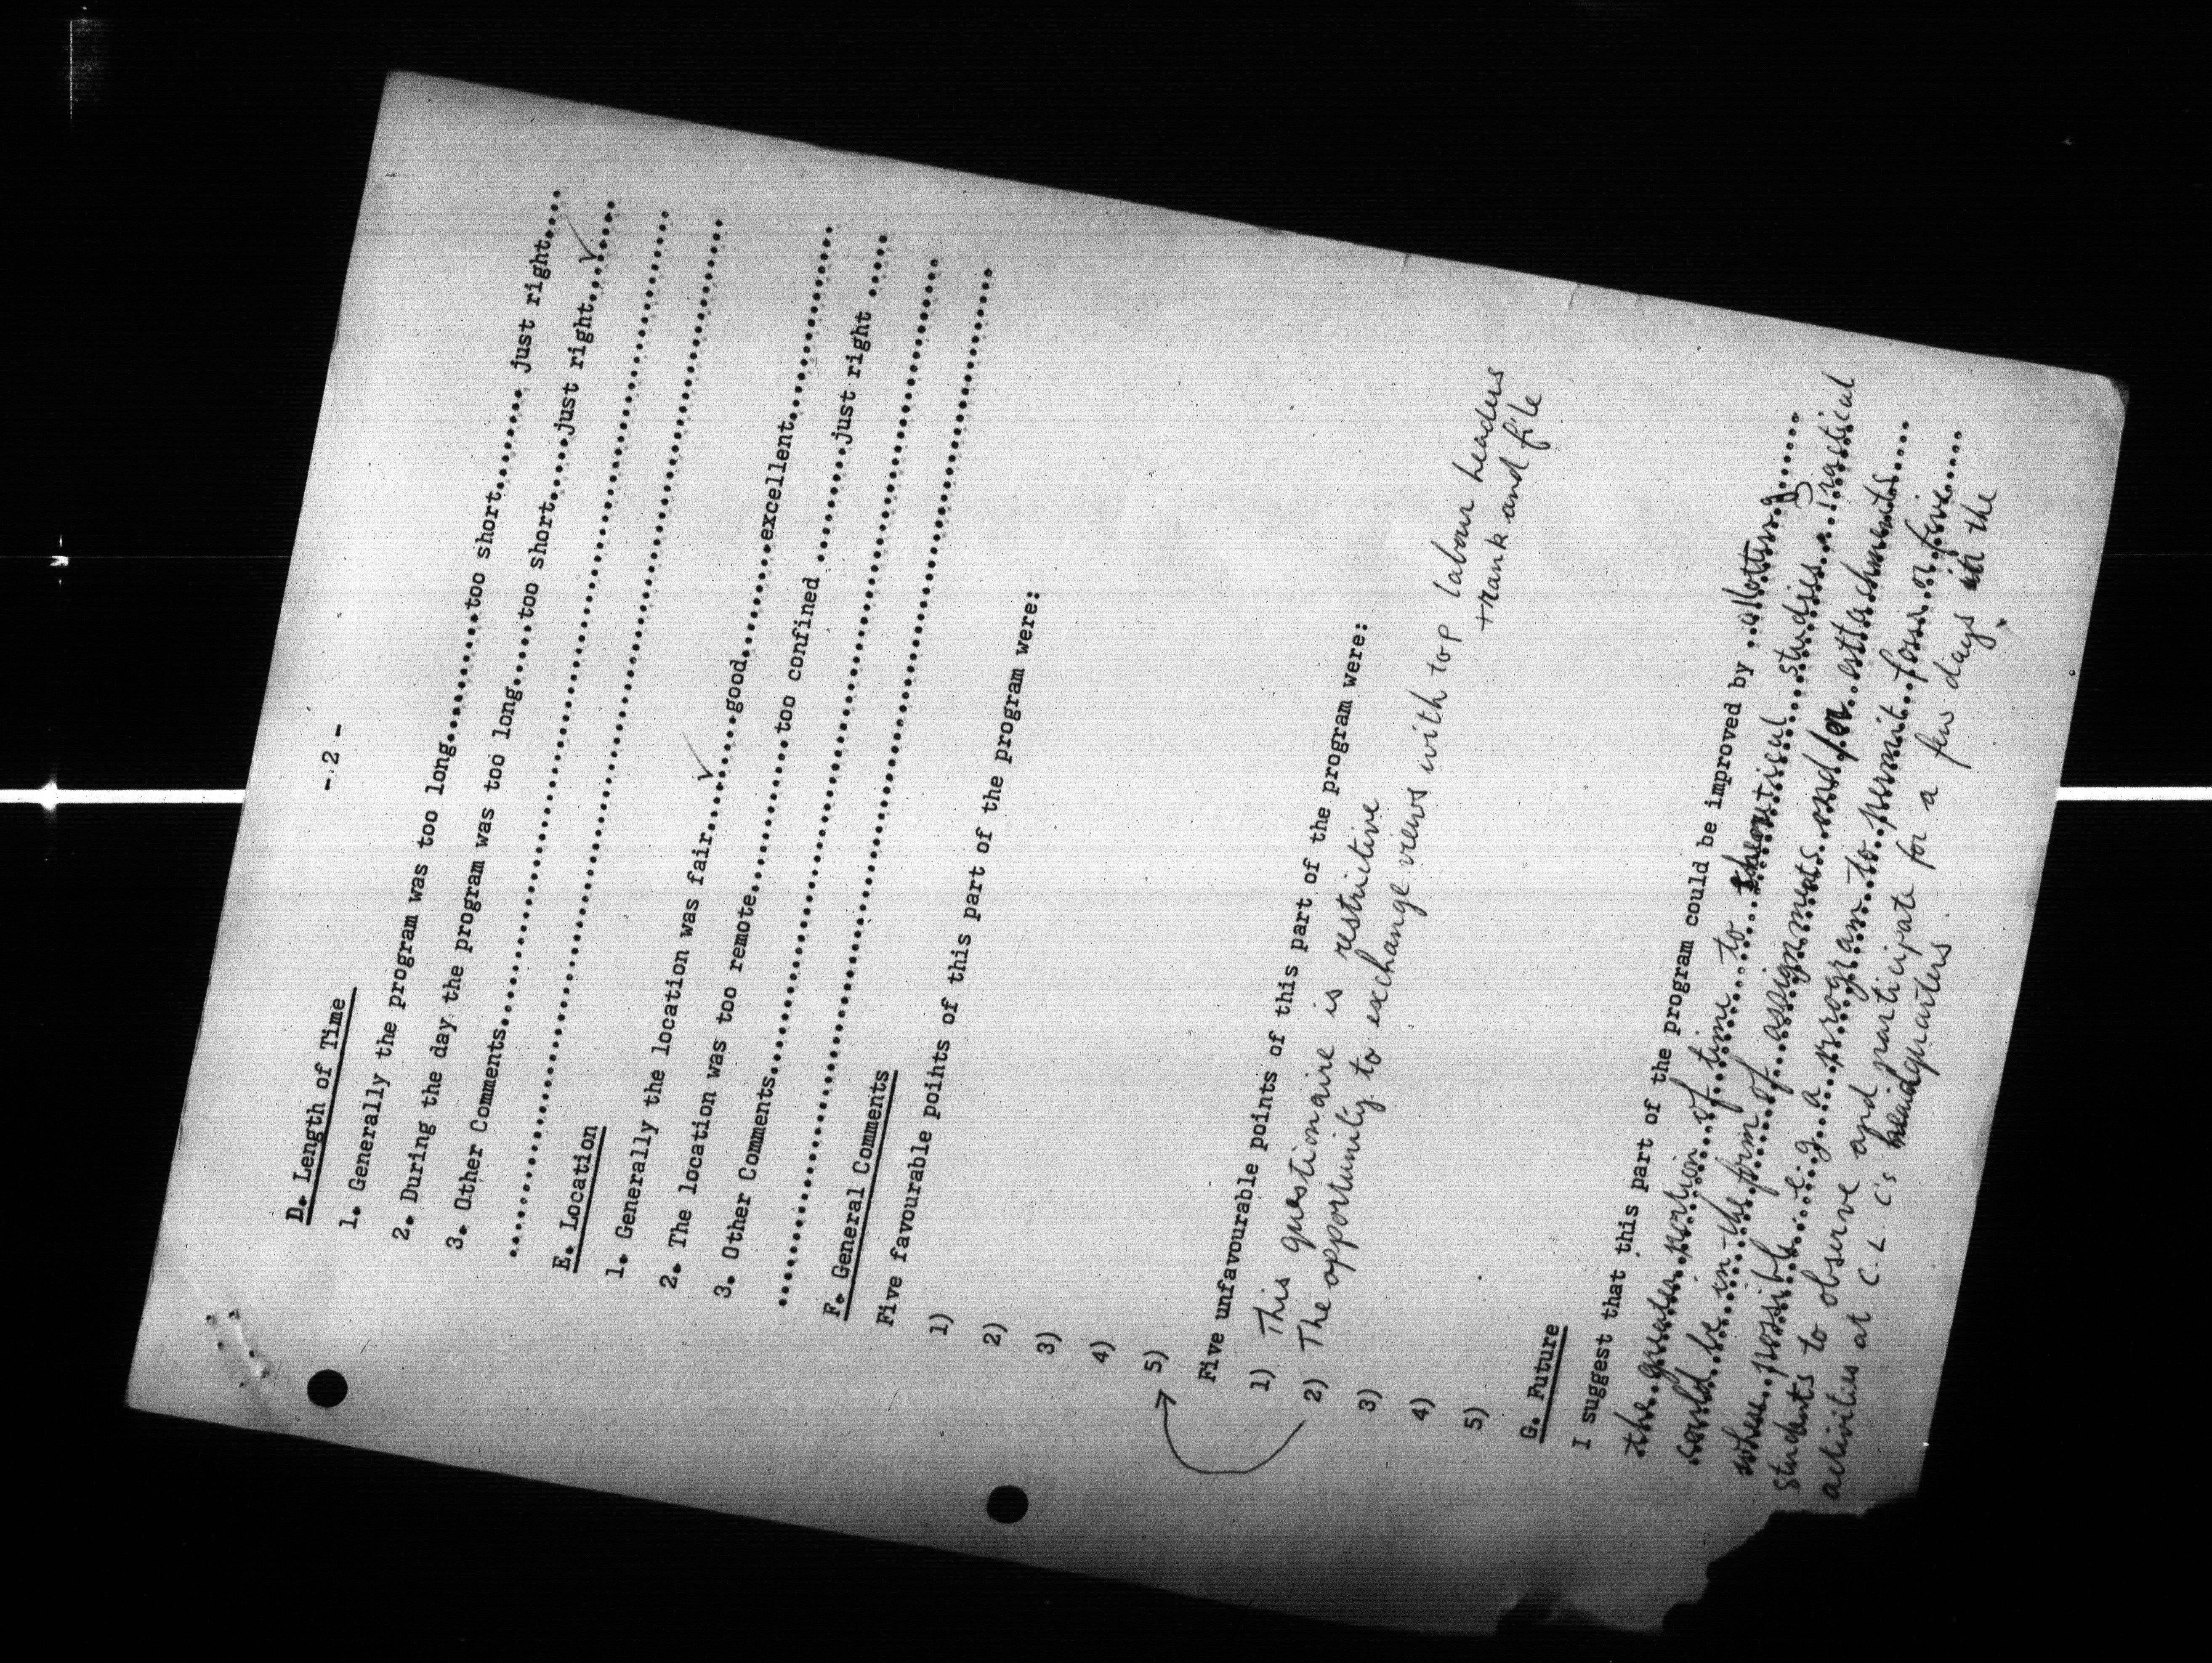 - 2 -
D. Length of Time
1. Generally the program was too long..........too short........ just right....
2. During the day the program was too long.....too short.....just right...✓...
3. Other Comments..............................................................
...............................................................................
E. Location
1. Generally the location was fair...✓...good..........excellent..............
2. The location was too remote..........too confined ..........just right .....
3. Other Comments..............................................................
...............................................................................
F. General Comments
Five favourable points of this part of the program were:
1)
2)
3)
4)
5)
Five unfavourable points of this part of the program were:
1) This questionaire is restrictive
2) The opportunity to exchange views with top labour leaders
+ rank and file
3)
4)
5)
G. Future
I suggest that this part of the program could be improved by allotting
the greater portion of time to theoretical studies. Practical
could be in the form of assignments and/or attachments
where possible e.g a program to permit four or five
students to observe and participate for a few days in the
activities at C.L.C's headquarters